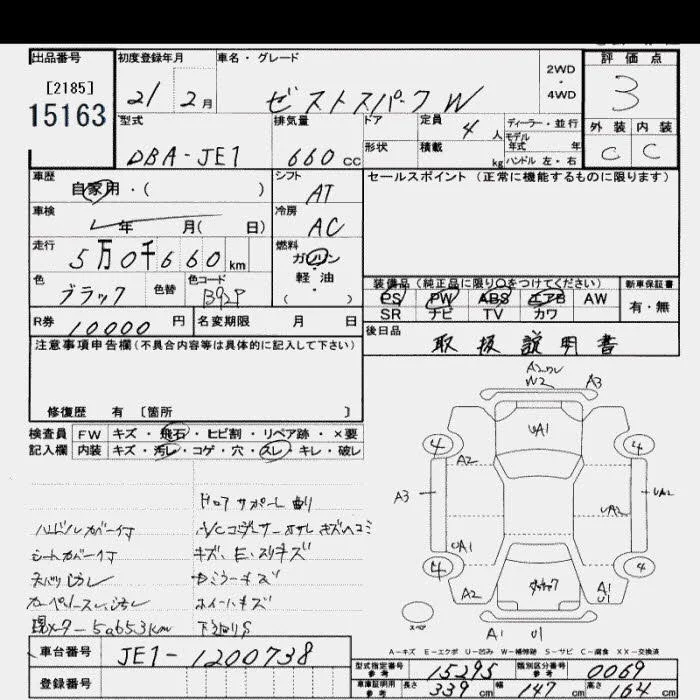 出品番号
[2185]
15163
初度登録年月
21 2月
車名・グレード
ゼストスパーク W
2WD
・
4WD
評価点
3
外装 内装
C C
型式
DBA-JE1
排気量
660 CC
ドア
定員
4人
形状
積載
kg
ディーラー・並行
モデル
年式 年
ハンドル 左・右
車歴
自家用・( )
シフト
AT
セールスポイント (正常に機能するものに限ります)
車検
年 月( 日)
冷房
AC
走行
5万0千660km
燃料
ガソリン
軽・油
( )
色
ブラック
色替
色コード
B92P
装備品(純正品に限り〇をつけてください)
新車保証書
PS PW ABS エアB AW
有・無
SR ナビ TV カワ
R券
10000円
名変期限 月 日
後日品
取扱説明書
注意事項申告欄(不具合内容等は具体的に記入して下さい)
修復歴 有 [箇所 ]
検査員 FW キズ・飛石・ヒビ割・リペア跡・×要
記入欄 内装 キズ・汚レ・コゲ・穴・スレ・キレ・破レ
ドロアサポート曲り
ハンドルカバー付
シートカバー付
キズ、E、スリキズ
ドアミラーキズ
ホイールキズ
現メーター 50653km
下廻りS
A2
W2
A3
UA1
4
4
A2
A3
UA2
UA2
UA1
4
4
A2
A1
U1
スペア
A1 U1
A-キズ E-エクボ U-凹み W-補修跡 S-サビ C-腐食 XX-交換済
車台番号
JE1-1200738
登録番号
型式指定番号
参考
15295
類別区分番号
参考
0069
車庫証明用
参考
長さ 339cm 幅 147cm 高さ 164cm